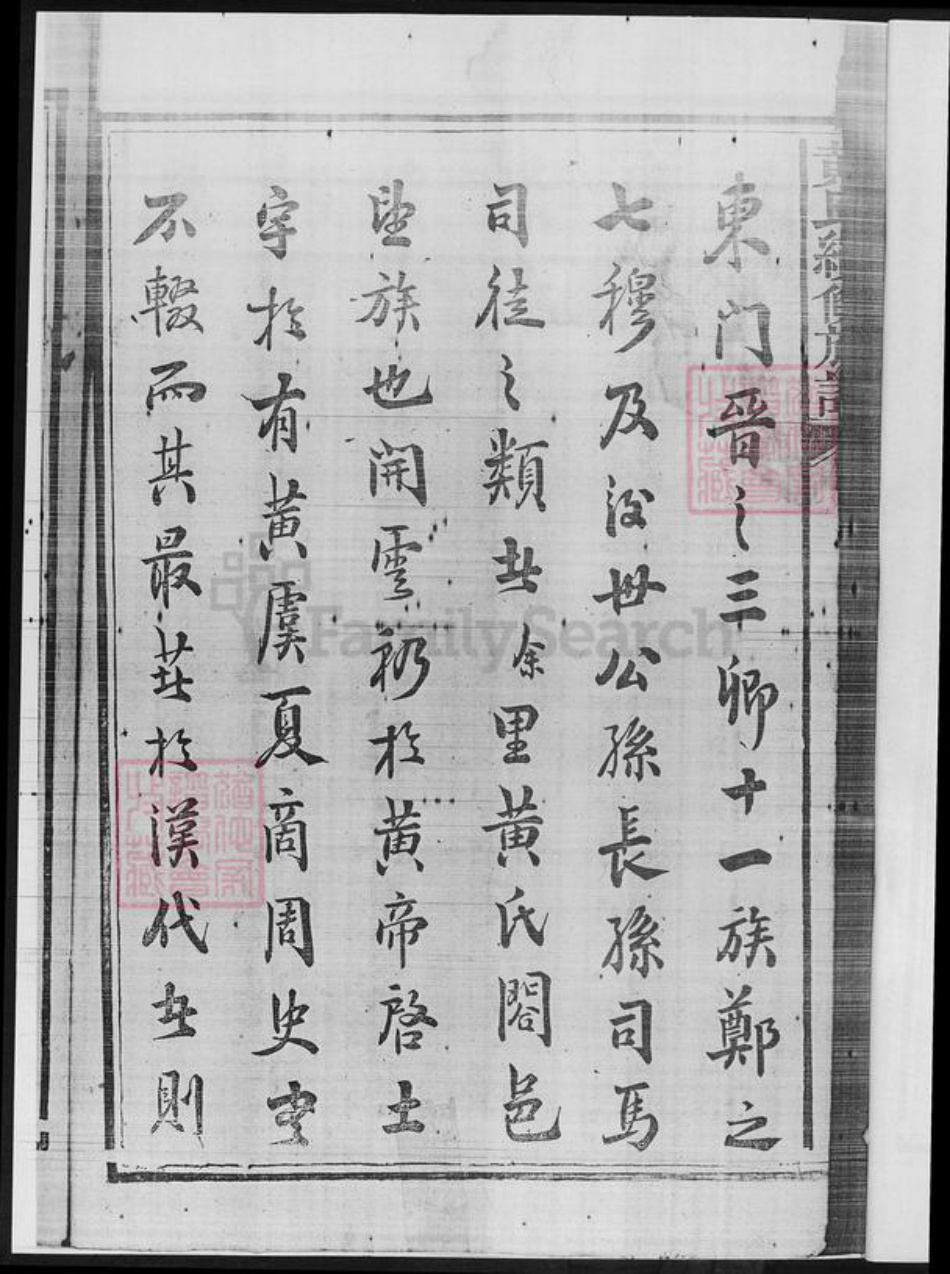 黃氏續修族譜
東门晉之三卿十一族鄭之
七穆及後世公孫長孫司馬
司徒之類是余里黃氏閤邑
望族也開雲礽於黃帝啓土
宇於有黃虞夏商周史書
不輟而其最著於漢代者則
FamilySearch